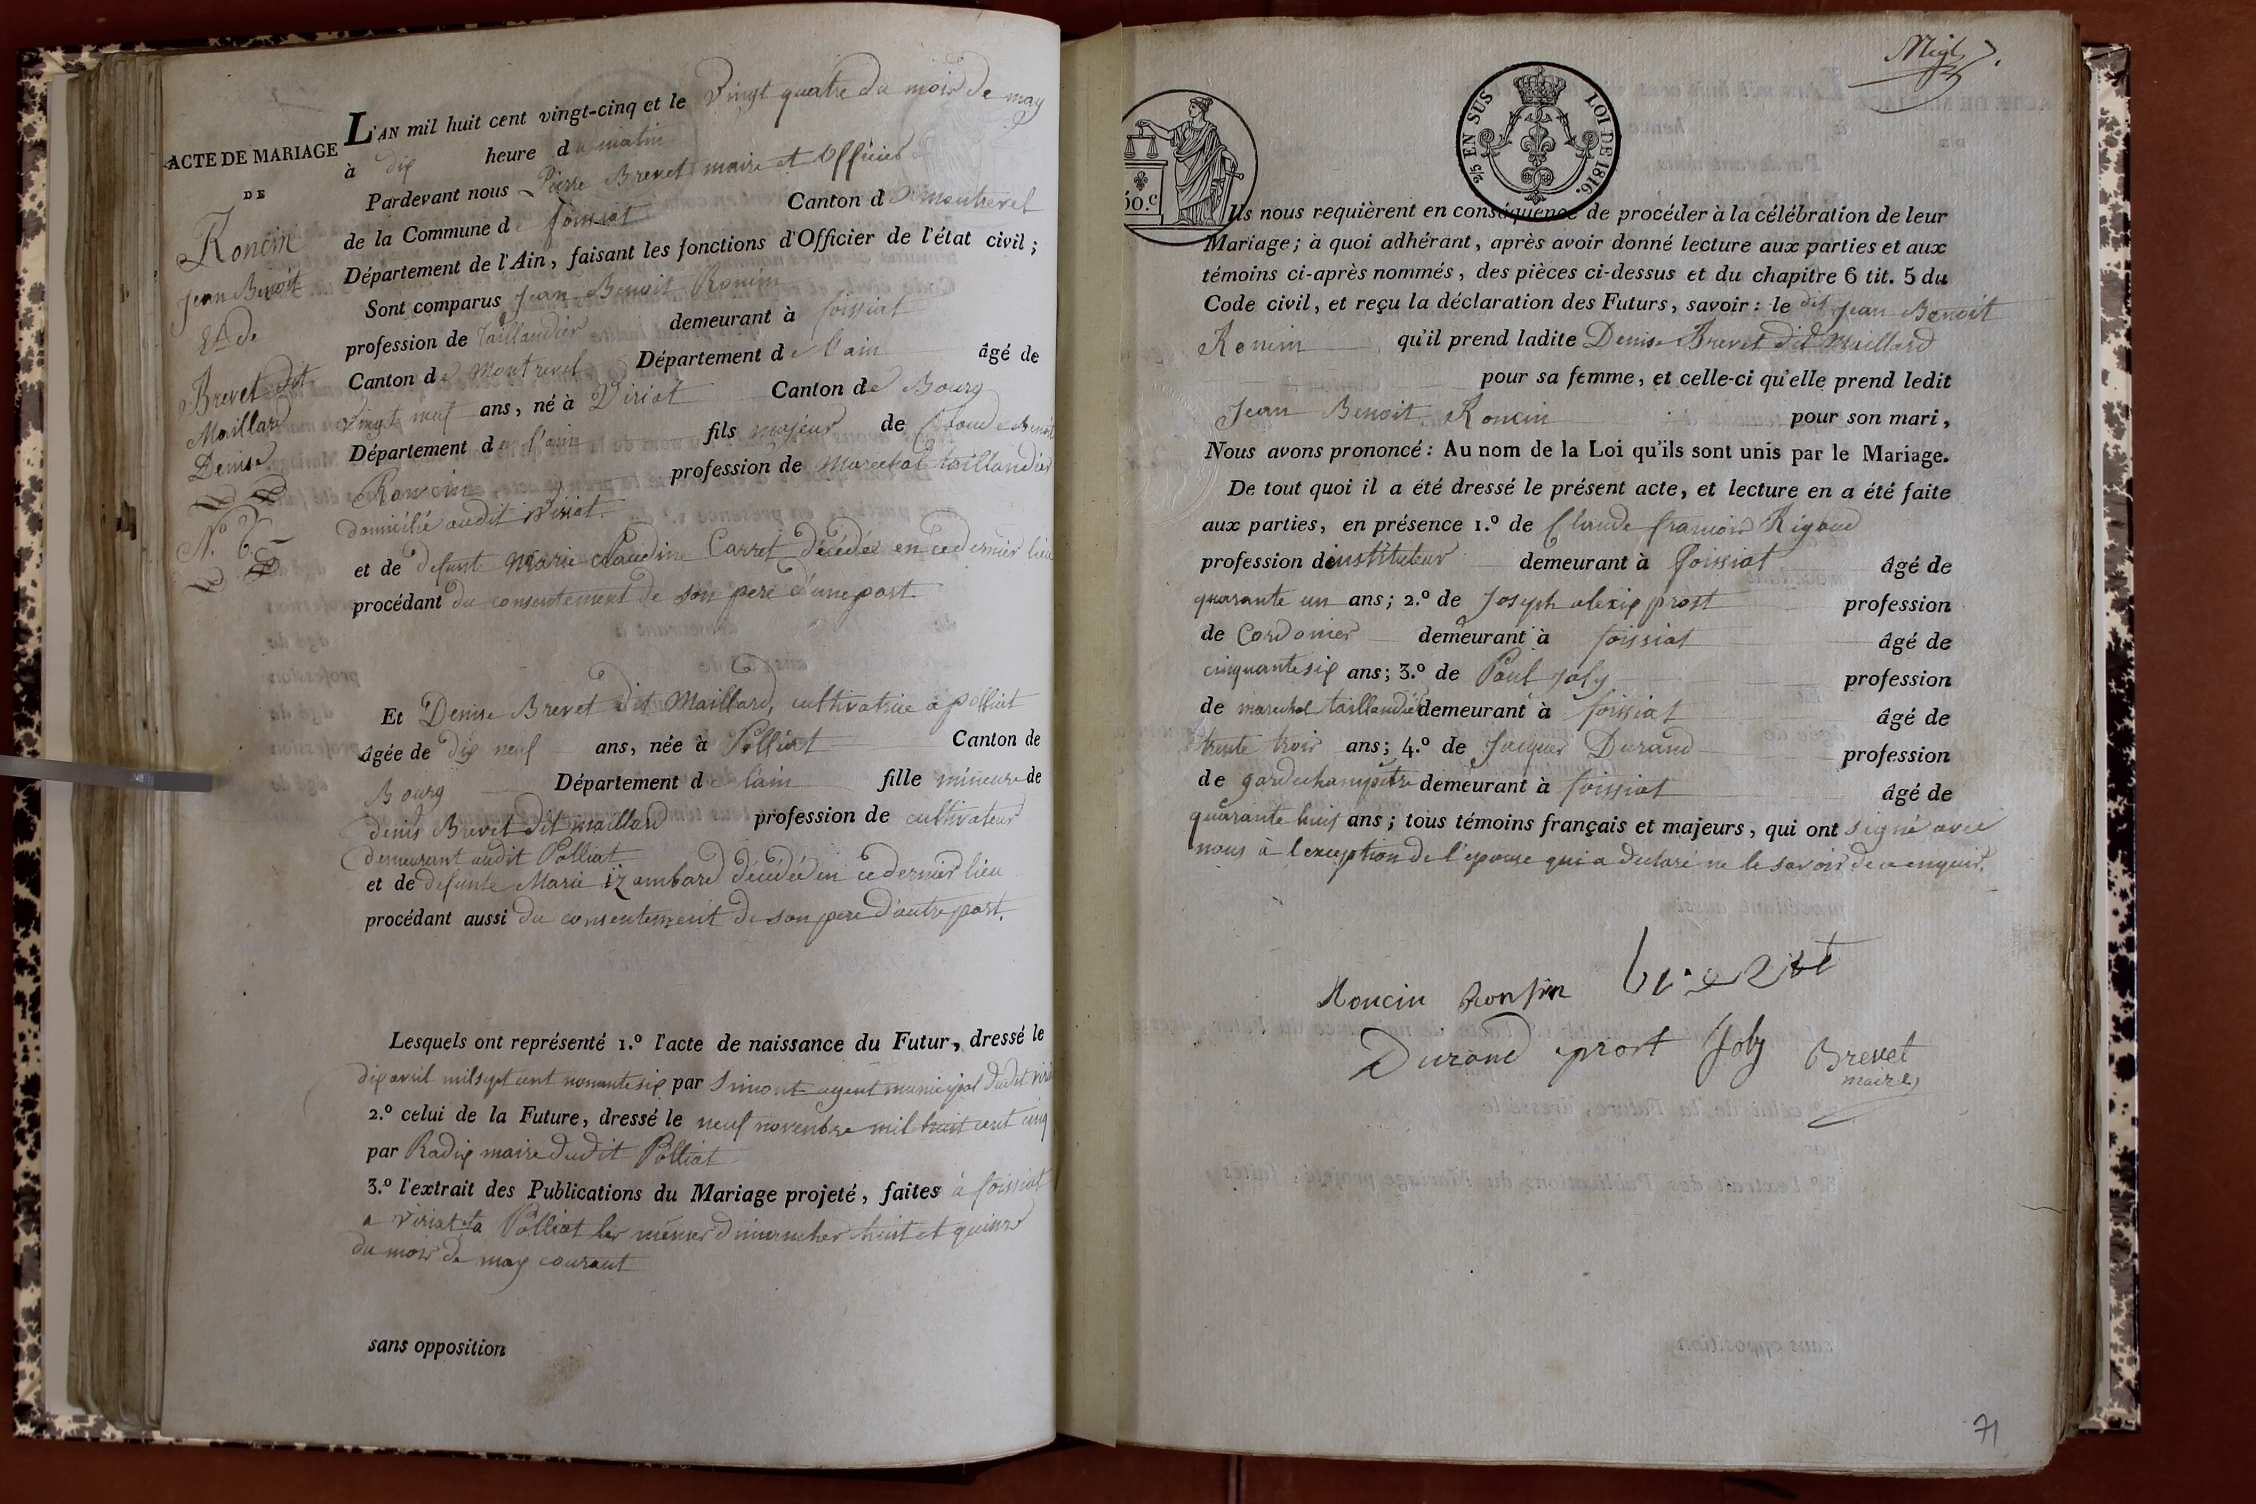 L'AN mil huit cent vingt-cinq et le Vingt quatre du mois de may
à dix heure du matin
ACTE DE MARIAGE
DE
Roncin
Jean Benoit
Et de
Brevet dit
Maillard
Denise
N.º 6
Pardevant nous Pierre Brevet maire et officier
de la Commune de foissiat Canton de montrevel
Département de l'Ain, faisant les fonctions d'Officier de l'état civil ;
Sont comparus Jean Benoit Ronin
profession de Taillandier demeurant à foissiat
Canton de Montrevel Département de l'ain âgé de
vingt neuf ans, né à Viriat Canton de Bourg
Département de l'ain fils majeur de Claude Benoit
Roncin profession de Marechal taillandier
domicilié audit Viriat
et de defunte Marie Claudine Carret décédée en ce dernier lieu
procédant du consentement de son pere d'une part
Et Denise Brevet dit Maillard, cultivatrice a polliat
âgée de dix neuf ans, née à Polliat Canton de
Bourg Département de lain fille mineure de
denis Brevet dit maillard profession de cultivateur
demeurant audit Polliat
et de defunte Marie izambard décédée en ce dernier lieu
procédant aussi du consentement de son pere d'autre part.
Lesquels ont représenté 1.º l'acte de naissance du Futur, dressé le
dix avril mil sept cent nonante six par Simont agent municipal dudit viri
2.º celui de la Future, dressé le neuf novembre mil huit cent cinq
par Radix maire dudit Polliat
3.º l'extrait des Publications du Mariage projeté, faites à foissiat
a viriat et a Polliat les mêmes dimanches huit et quinze
du mois de may courant
sans opposition
50.c
2/5 EN SUS LOI DE 1816.
Ils nous requièrent en conséquence de procéder à la célébration de leur
Mariage ; à quoi adhérant, après avoir donné lecture aux parties et aux
témoins ci-après nommés, des pièces ci-dessus et du chapitre 6 tit. 5 du
Code civil, et reçu la déclaration des Futurs, savoir : le dit Jean Benoit
Ronin qu'il prend ladite Denise Brevet dit Maillard
pour sa femme, et celle-ci qu'elle prend ledit
Jean Benoit Roncin pour son mari,
Nous avons prononcé : Au nom de la Loi qu'ils sont unis par le Mariage.
De tout quoi il a été dressé le présent acte, et lecture en a été faite
aux parties, en présence 1.º de Claude francois Rigaud
profession d'instituteur demeurant à foissiat âgé de
quarante un ans ; 2.º de Joseph alexis prost profession
de Cordonier demeurant à foissiat âgé de
cinquante six ans ; 3.º de Paul Joly profession
de marechal taillandier demeurant à foissiat âgé de
trente trois ans ; 4.º de Jacques Durand profession
de garde champêtre demeurant à foissiat âgé de
quarante huit ans ; tous témoins français et majeurs, qui ont signé avec
nous à l'exception de l'epouse qui a declaré ne le savoir de ce enquis.
Roncin Ronsin brevet
Durand prost Joly Brevet
maire
71